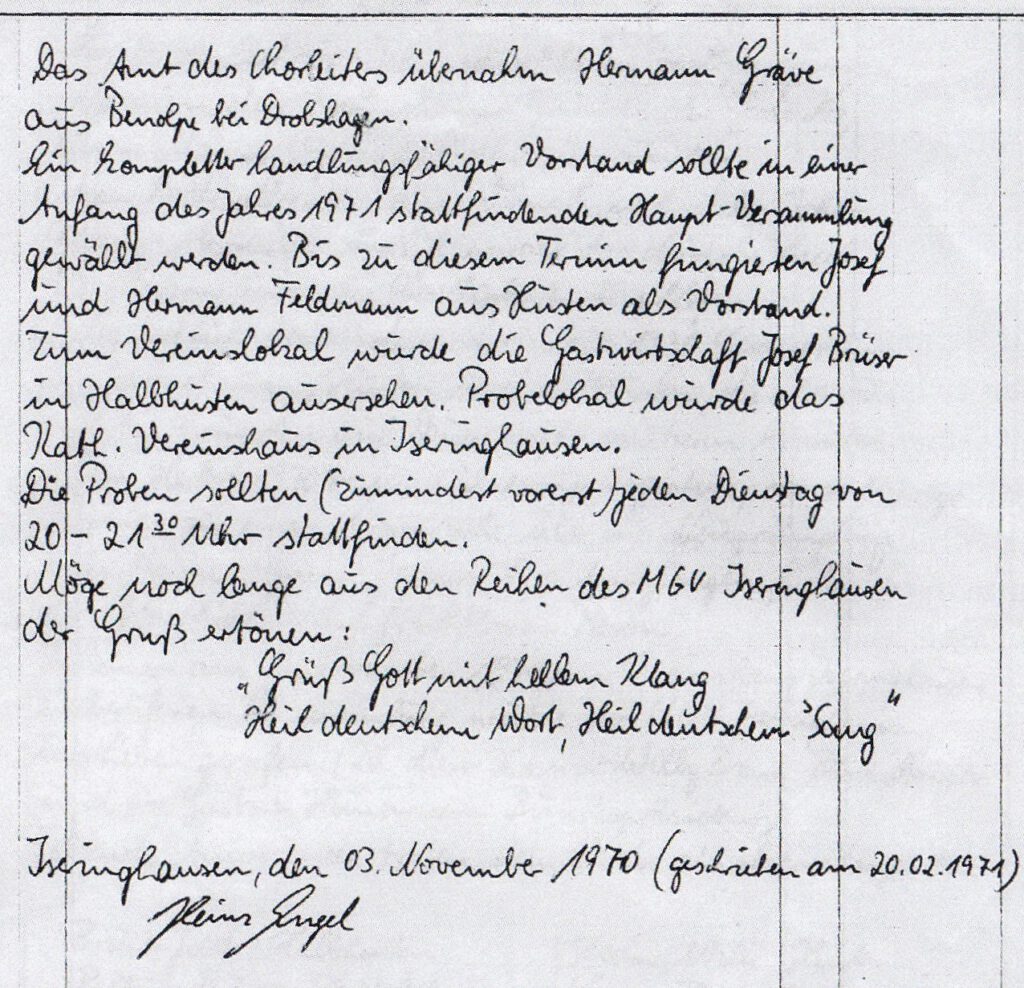 Das Amt des Chorleiters übernahm Hermann Gräve
aus Benolpe bei Drolshagen.
Ein kompletter handlungsfähiger Vorstand sollte in einer
Anfang des Jahres 1971 stattfindenden Haupt-Versammlung
gewählt werden. Bis zu diesem Termin fungierten Josef
und Hermann Feldmann aus Husten als Vorstand.
Zum Vereinslokal wurde die Gastwirtschaft Josef Brüser
in Halbhusten ausersehen. Probelokal wurde das
Kath. Vereinshaus in Iseringhausen.
Die Proben sollten (zumindest vorerst) jeden Dienstag von
20 - 21³⁰ Uhr stattfinden.
Möge noch lange aus den Reihen des MGV Iseringhausen
der Gruß ertönen:
"Grüß Gott mit hellem Klang
Heil deutschem Wort, Heil deutschem Sang"
Iseringhausen, den 03. November 1970 (geschrieben am 20.02.1971)
Heinz Engel